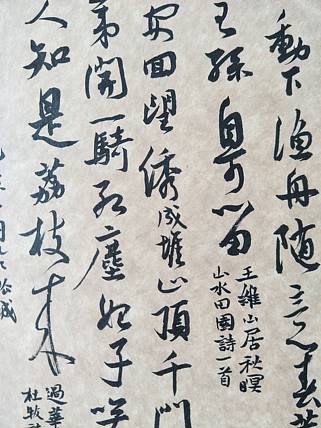 動下漁舟随意春芳
王孫自可留
王維山居秋暝
山水田園詩一首
安回望綉成堆山頂千門
第開一騎紅塵妃子笑
人知是荔枝来
過華
杜牧